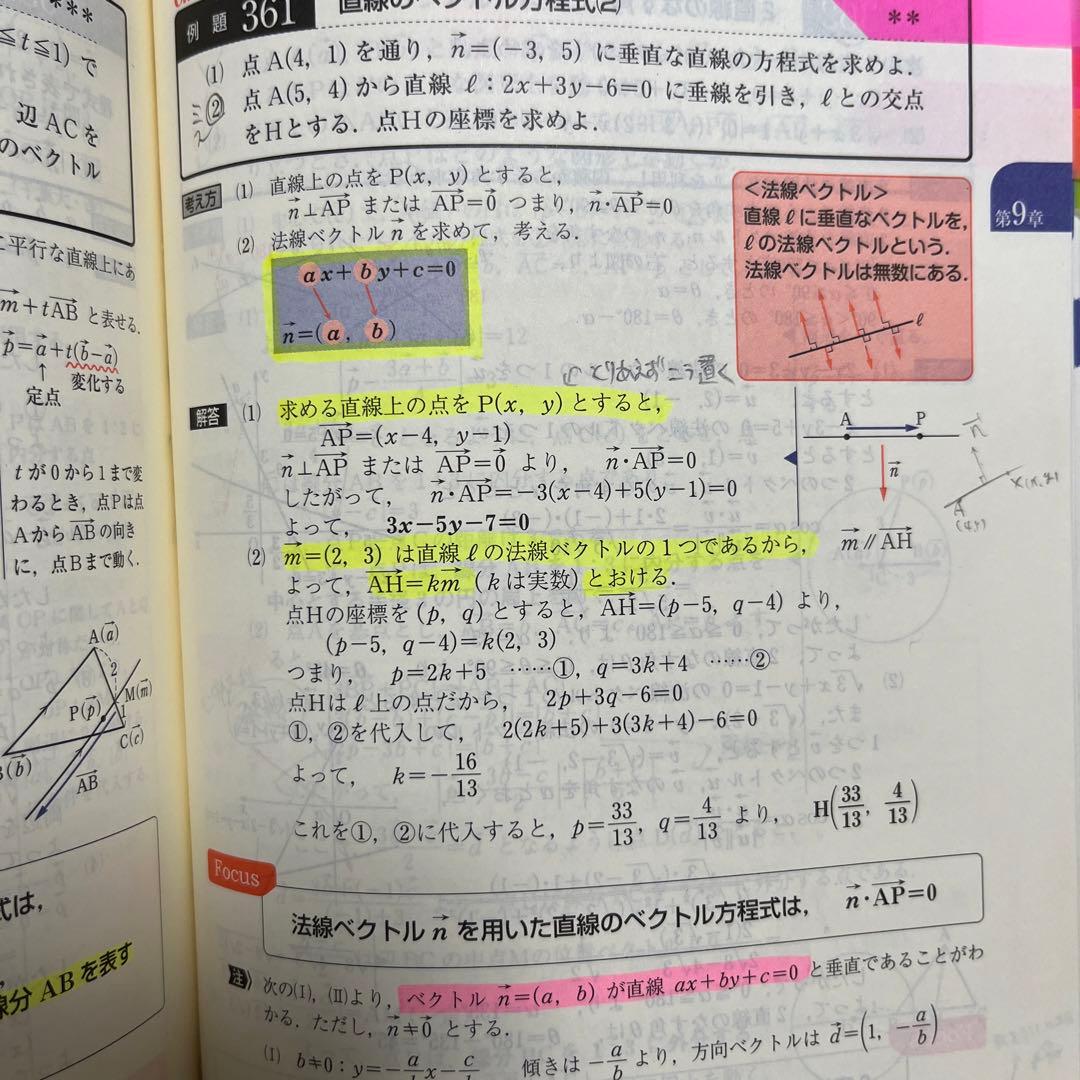 例題 361 直線のベクトル方程式(2)
**
(1) 点A(4, 1) を通り，n→=(−3, 5) に垂直な直線の方程式を求めよ．
(2) 点A(5, 4) から直線 ℓ：2x+3y−6=0 に垂線を引き，ℓとの交点
をHとする．点Hの座標を求めよ．
考え方 (1) 直線上の点を P(x, y) とすると，
n→⊥AP→ または AP→=0→ つまり，n→·AP→=0
(2) 法線ベクトル n→ を求めて，考える．
ax+by+c=0
n→=(a, b)
<法線ベクトル>
直線ℓに垂直なベクトルを，
ℓの法線ベクトルという．
法線ベクトルは無数にある．
ℓ
第9章
とりあえずこう置く
解答 (1) 求める直線上の点を P(x, y) とすると，
AP→=(x−4, y−1)
n→⊥AP→ または AP→=0→ より， n→·AP→=0
したがって， n→·AP→=−3(x−4)+5(y−1)=0
よって， 3x−5y−7=0
A P
n→
n→
A
m→∥AH→
(2) m→=(2, 3) は直線ℓの法線ベクトルの1つであるから，
よって，AH→=km→ (kは実数) とおける．
点Hの座標を (p, q) とすると，AH→=(p−5, q−4) より，
(p−5, q−4)=k(2, 3)
つまり， p=2k+5 ……①，q=3k+4 ……②
点Hはℓ上の点だから， 2p+3q−6=0
①，②を代入して， 2(2k+5)+3(3k+4)−6=0
よって， k=−16/13
これを①，②に代入すると，p=33/13，q=4/13 より， H(33/13, 4/13)
Focus
法線ベクトル n→ を用いた直線のベクトル方程式は， n→·AP→=0
注) 次の(I), (II)より，ベクトル n→=(a, b) が直線 ax+by+c=0 と垂直であることがわ
かる．ただし，n→≠0→ とする．
(I) b≠0：y=−a/b x−c/b 傾きは −a/b より，方向ベクトルは d→=(1, −a/b)
***
≦t≦1) で
辺ACを
のベクトル
に平行な直線上にあ
m→+tAB→ と表せる．
p→=a→+t(b→−a→)
↑
定点
変化する
tが0から1まで変
わるとき，点Pは点
Aから AB→ の向き
に，点Bまで動く．
A(a→)
2
M(m→)
P(p→)
1
C(c→)
B(b→)
AB→
式は，
線分ABを表す